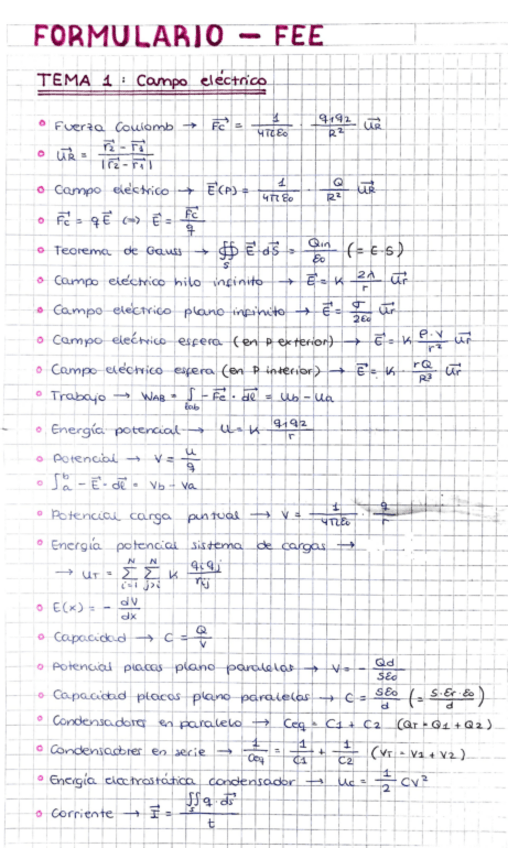 FORMULARIO — FEE
TEMA 1 : Campo eléctrico
• Fuerza Coulomb → F⃗c = 1/(4πε0) · q1q2/R² u⃗R
• u⃗R = (r⃗2 - r⃗1)/|r⃗2 - r⃗1|
• Campo eléctrico → E⃗(P) = 1/(4πε0) · Q/R² u⃗R
• F⃗c = qE⃗ <=> E⃗ = F⃗c/q
• Teorema de Gauss → ∯s E⃗ ds⃗ = Qin/ε0 (= E·S)
• Campo eléctrico hilo infinito → E⃗ = K 2λ/r u⃗r
• Campo eléctrico plano infinito → E⃗ = σ/(2ε0) u⃗r
• Campo eléctrico esfera (en P exterior) → E⃗ = K ρ·V/r² u⃗r
• Campo eléctrico esfera (en P interior) → E⃗ = K · rQ/R³ u⃗r
• Trabajo → WAB = ∫lab -F⃗c · dl⃗ = Ub - Ua
• Energía potencial → U = K q1q2/r
• Potencial → V = U/q
• ∫a^b -E⃗ · dl⃗ = Vb - Va
• Potencial carga puntual → V = 1/(4πε0) · q/r
• Energía potencial sistema de cargas →
→ UT = Σ(i=1)^N Σ(j>i)^N K qiqj/rij
• E(x) = - dV/dx
• Capacidad → C = Q/V
• Potencial placas plano paralelas → V = - Qd/(Sε0)
• Capacidad placas plano paralelas → C = Sε0/d (= S·εr·ε0/d)
• Condensadores en paralelo → Ceq = C1 + C2 (QT = Q1 + Q2)
• Condensadores en serie → 1/Ceq = 1/C1 + 1/C2 (VT = V1 + V2)
• Energía electrostática condensador → Uc = 1/2 CV²
• Corriente → I⃗ = ∬s q·ds⃗/t